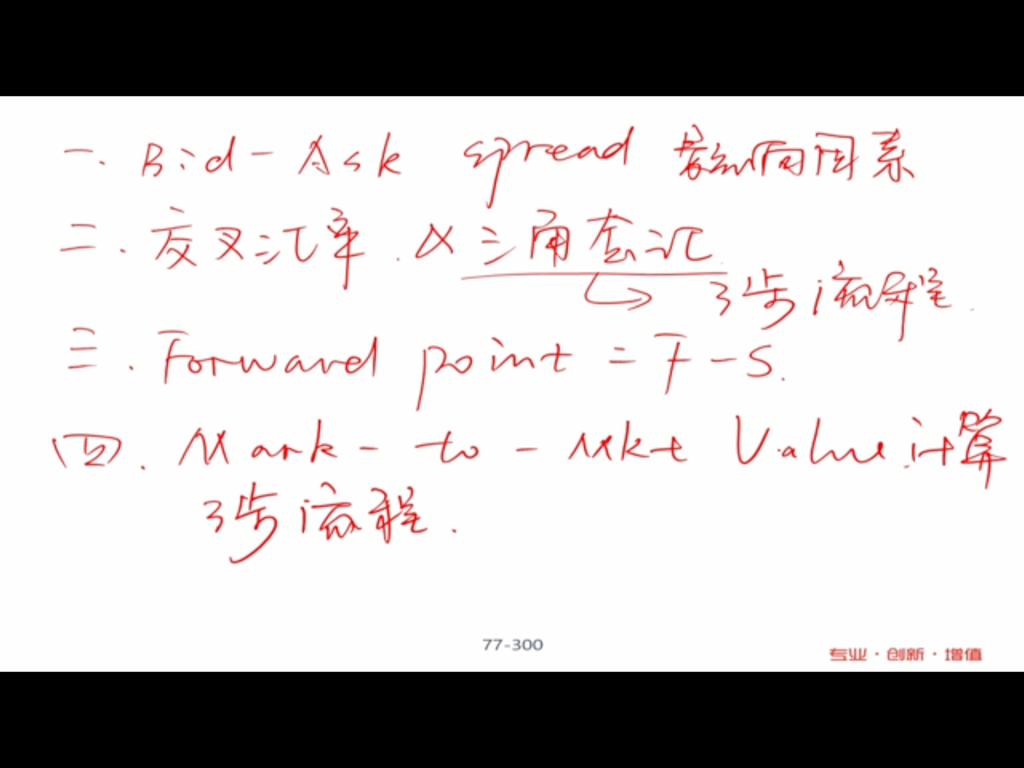 一. Bid-Ask spread 影响因素
二. 交叉汇率. & 三角套汇
↳ 3步流程.
三. Forward point = F-S.
四. Mark-to-Mkt Value 计算
3步流程.
77-300
专业·创新·增值